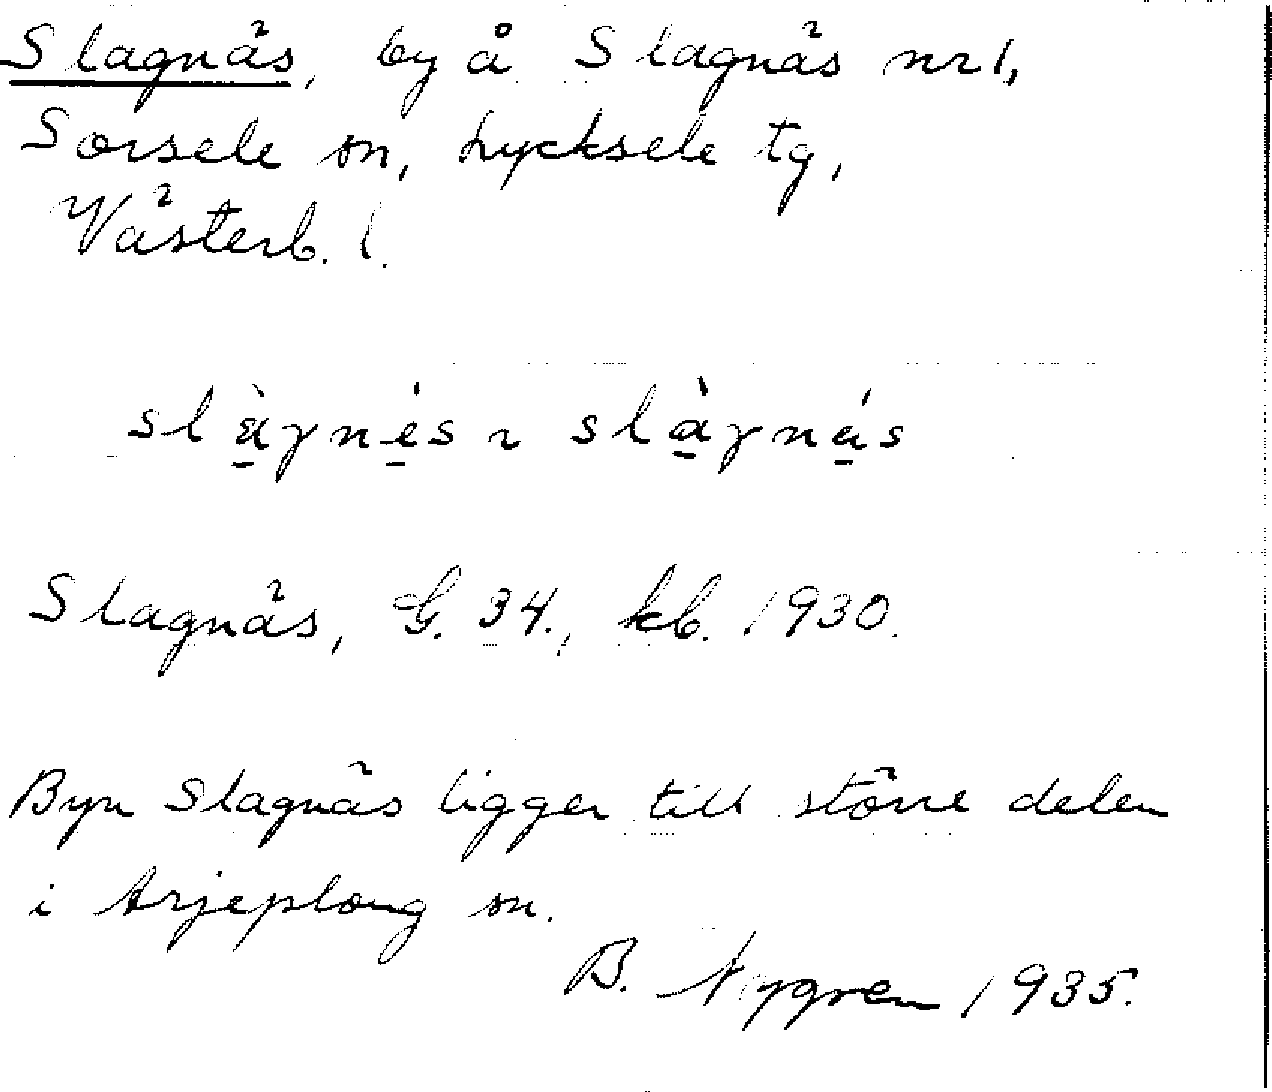 Slagnäs, by å Slagnäs nr 1,
Sorsele sn, Lycksele tg,
Västerb. l.
slà̱γné̱s ~ slà̱γná̱s
Slagnäs, G. 34., kb. 1930.
Byn Slagnäs ligger till större delen
i Arjeplong sn.
B. Nygren 1935.